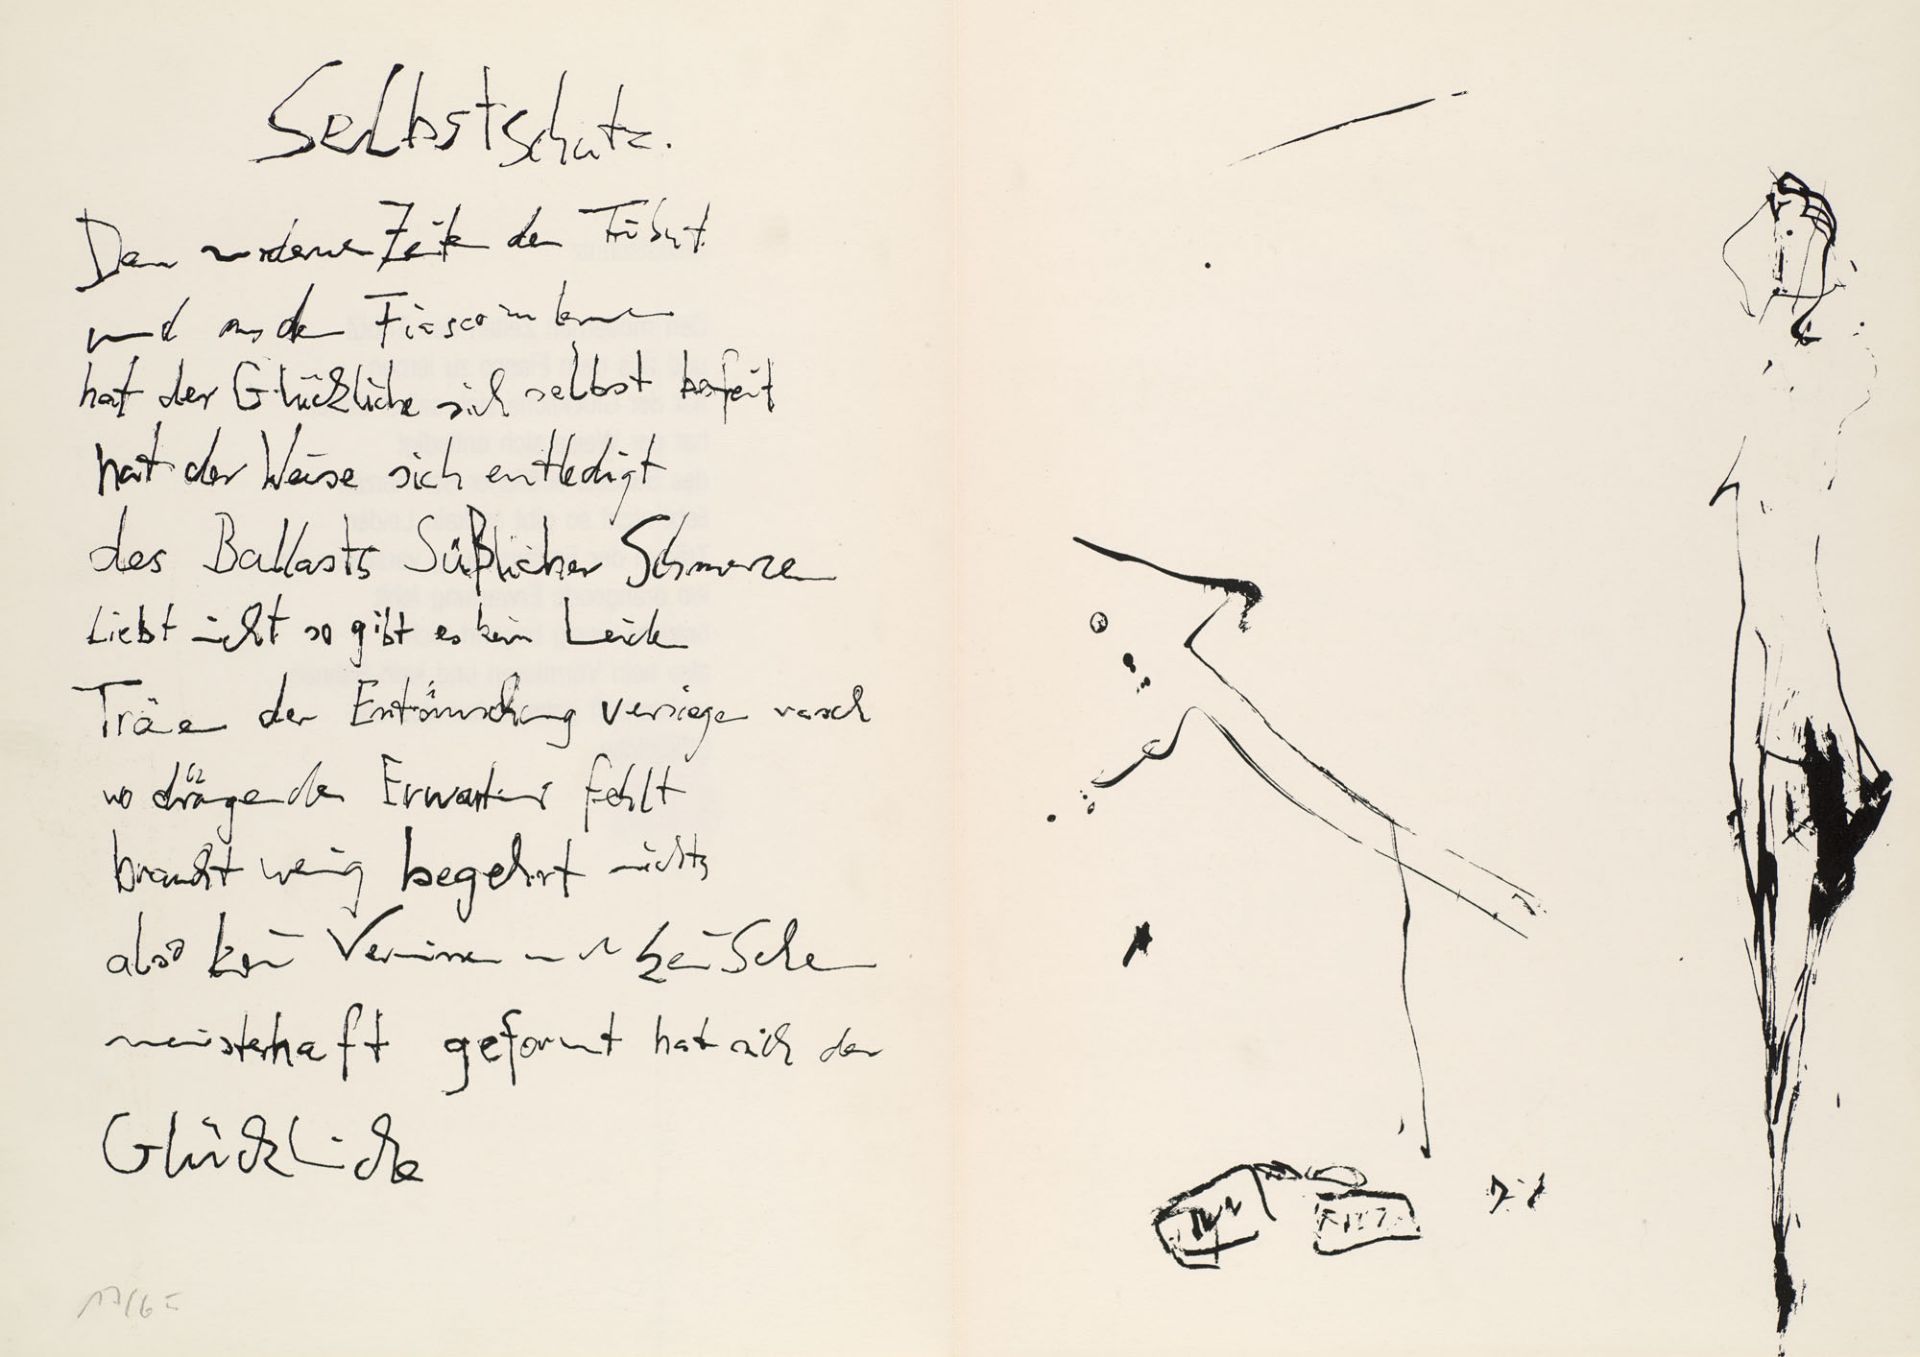 Selbstschutz.
Den modernen Zeiten den Tribut
und aus dem Fiasco zu lernen
hat der Glückliche sich selbst befreit
hat der Weise sich entledigt
des Ballasts Süßlicher Schmerzen
Liebt nicht so gibt es kein Leiden
Tränen der Enttäuschung versiegen rasch
wo drängende Erwartung fehlt
braucht wenig begehrt nichts
also kein Vermissen und kein Sehnen
meisterhaft geformt hat sich der
Glückliche
17/65